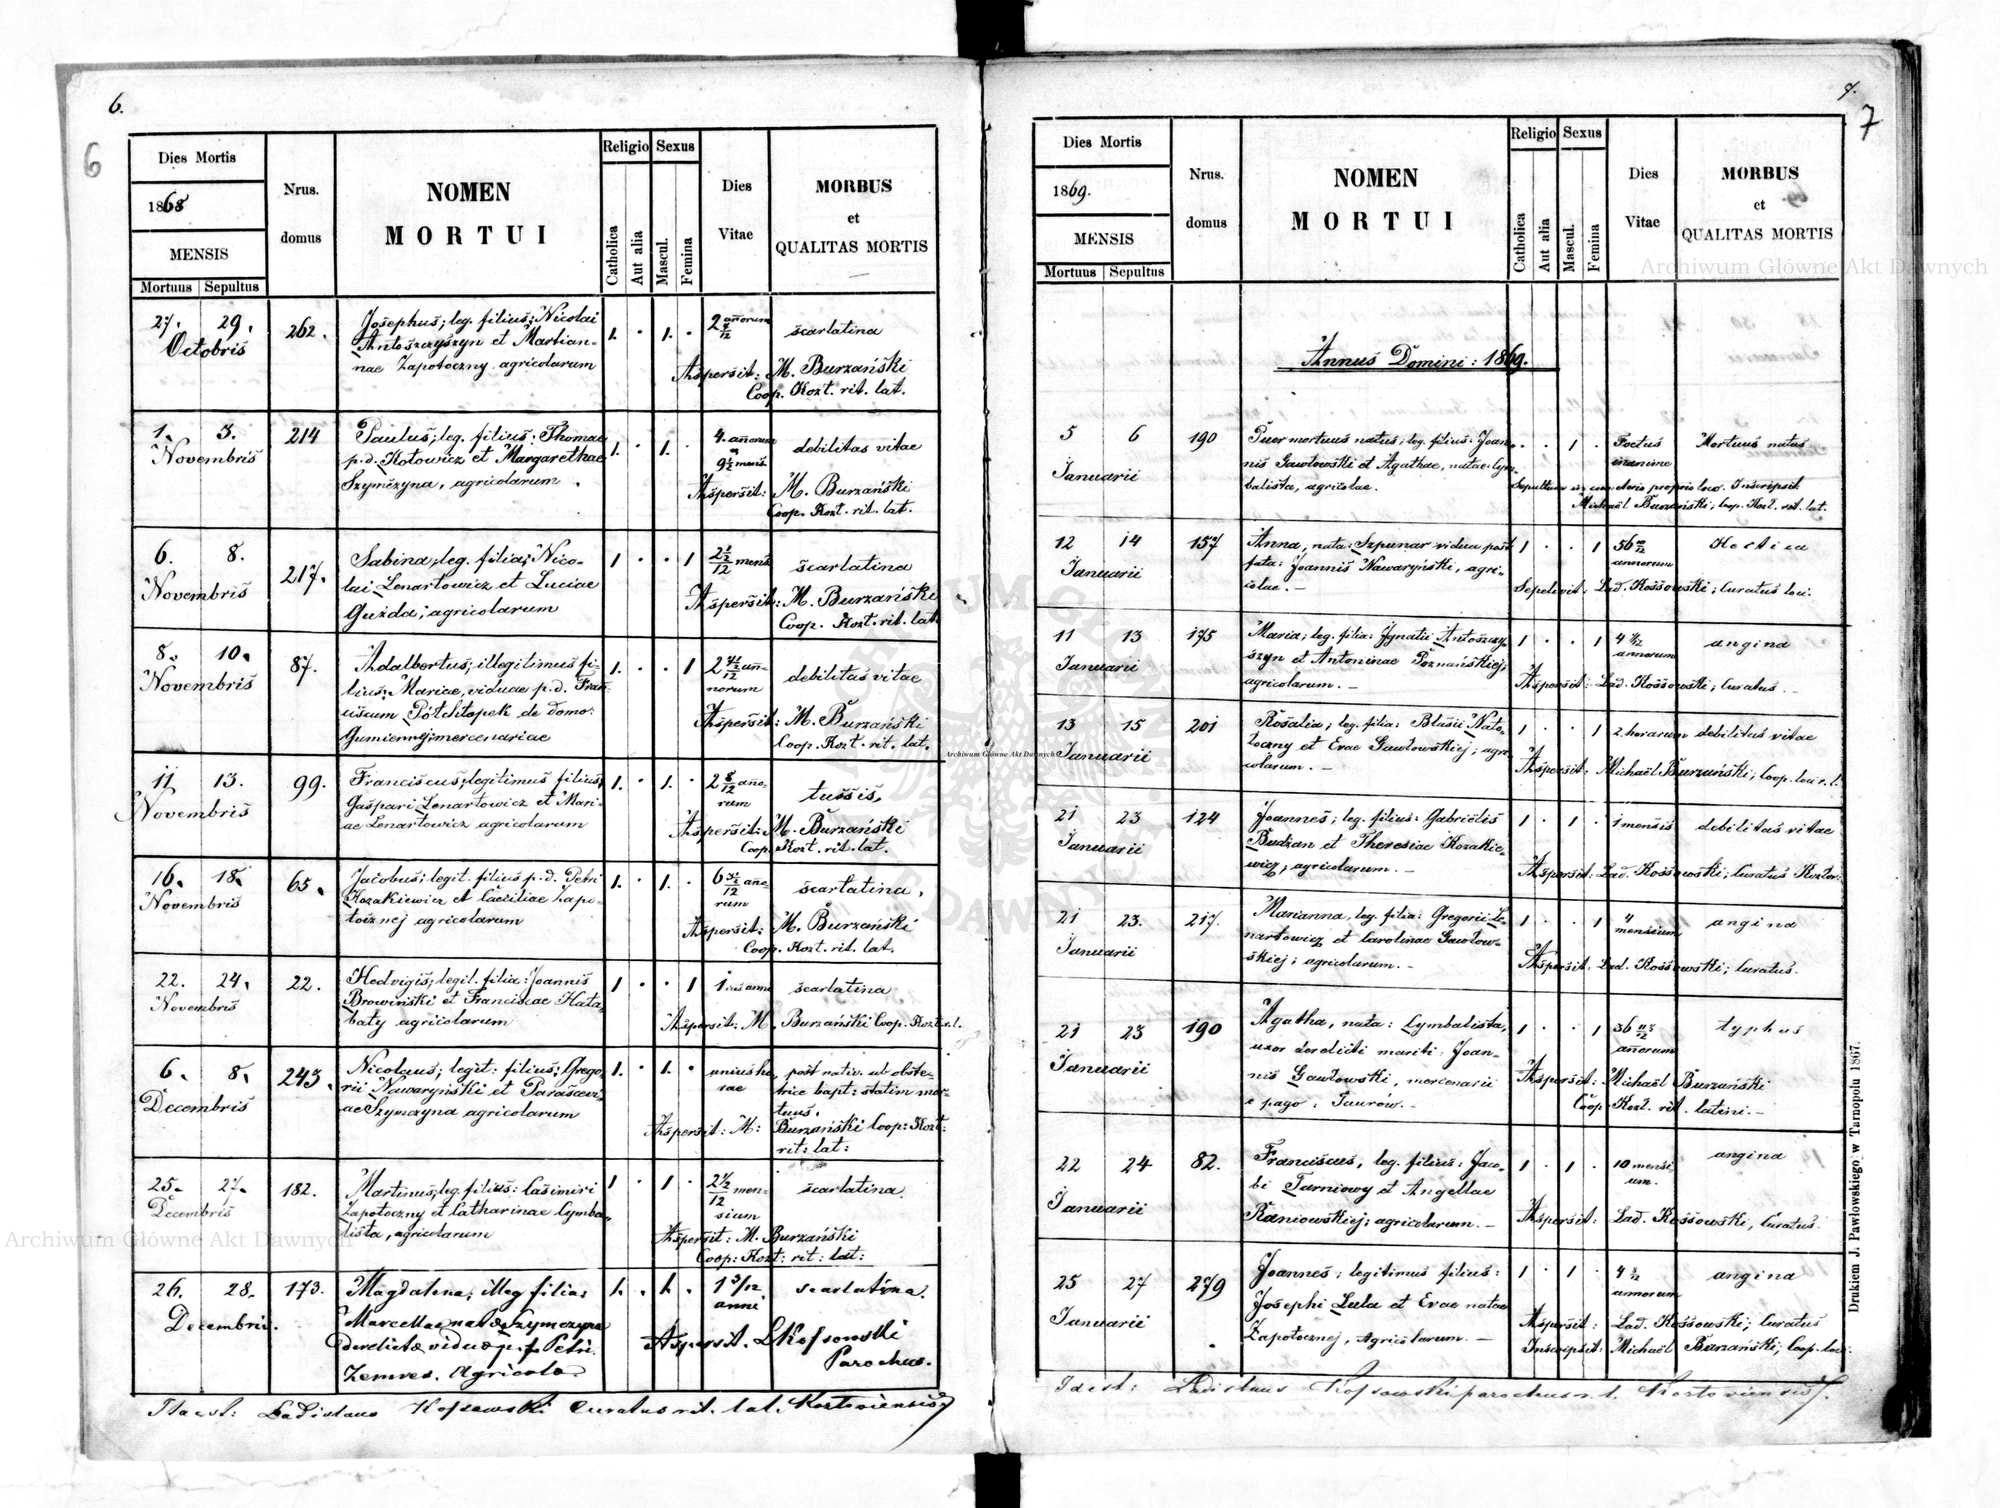 6.
6
Dies Mortis
1868
MENSIS
Mortuus Sepultus
Nrus.
domus
NOMEN
MORTUI
Religio
Catholica
Aut alia
Sexus
Mascul.
Femina
Dies
Vitae
MORBUS
et
QUALITAS MORTIS
27. 29.
Octobris
262.
Josephus; leg. filius: Nicolai
Antoszczyszyn et Martian-
nae Zapotoczny agricolarum
1. . 1. .
2 annorum
scarlatina
Aspersit: M. Burzański
Coop. Kozł. rit. lat.
1. 3.
Novembris
214
Paulus; leg. filius: Thomae
p.d. Kotowicz et Margarethae
Szymczyna, agricolarum.
1. . 1. .
4. annorum
9½ mens.
debilitas vitae
Aspersit: M. Burzański
Coop. Kozł. rit. lat.
6. 8.
Novembris
217.
Sabina; leg. filia: Nico-
lai Lenartowicz et Luciae
Guzda; agricolarum
1 . . 1
mens
scarlatina
Aspersit: M. Burzański
Coop. Kozł. rit. lat.
8. 10.
Novembris
87.
Adalbertus; illegitimus fi-
lius: Mariae, viduae p.d. Fran-
ciscum Półchłopek de domo:
Gumiennej; mercenariae
1. . . 1
an-
norum
debilitas vitae
Aspersit: M. Burzański
Coop. Kozł. rit. lat.
11 13.
Novembris
99.
Franciscus; legitimus filius:
Gaspari Lenartowicz et Mari-
ae Lenartowicz agricolarum
1. . 1. .
2 8/12 anno-
rum
tussis,
Aspersit: M. Burzański
Coop. Kozł. rit. lat.
16. 18.
Novembris
65.
Jacobus; legit. filius p.d. Petri
Kozakiewicz et Caeciliae Zapo-
tocznej agricolarum
1. . 1. .
anno-
rum
scarlatina,
Aspersit: M. Burzański
Coop. Kozł. rit. lat.
22. 24.
Novembris
22.
Hedvigis; legit. filia: Joannis
Browiński et Franciscae Hała-
baty agricolarum
1 . . 1
scarlatina
Aspersit: M. Burzański Coop. Kozł. r. l.
6. 8.
Decembris
243.
Nicolaus; legit: filius: Grego-
rii Nawaryński et Parascevi-
ae Szymczyna agricolarum
1. . 1. .
unius ho-
rae
post nativ. ab obste-
trice bapt: statim mor-
tuus.
Aspersit: M: Burzański Coop: Kozł:
rit: lat:
25. 27.
Decembris
182.
Martinus; leg. filius: Casimiri
Zapotoczny et Catharinae Cymba-
lista, agricolarum
1 . 1 .
men-
sium
scarlatina.
Aspersit: M. Burzański
Coop: Kozł: rit: lat:
26. 28.
Decembris.
173.
Magdalena; illeg filia:
Marcellae nata Szymczyna
derelicta vidua p. f. Petri
Zemres. Agricola
1. . 1. .
1 3/12
anni
scarlatina.
Aspersit. LKossowski
Parochus.
Ita est: Ladislaus Kossowski Curatus rit. lat. Kozłoviensis
7.
7
Dies Mortis
1869.
MENSIS
Mortuus Sepultus
Nrus.
domus
NOMEN
MORTUI
Religio
Catholica
Aut alia
Sexus
Mascul.
Femina
Dies
Vitae
MORBUS
et
QUALITAS MORTIS
Annus Domini: 1869.
5 6
Januarii
190
Puer mortuus natus; leg. filius: Joan-
nis Gawłowski et Agathae, natae: Cym-
balista, agricolae.
. . 1 .
Foetus
inanime
Mortuus natus
Sepultum in loco. Inscripsit
Michaël Burzański, Coop. Kozł. rit. lat.
12 14
Januarii
157
Anna, nata: Szpunar vidua post
fata: Joannis Nawaryński, agri-
colae. –
1 . . 1
56
annorum
Hectica
Sepelivit: Lad. Kossowski; Curatus loci.
11 13
Januarii
175
Maria; leg. filia: Ignatii Antoszczy-
szyn et Antoninae Poznańskiej;
agricolarum. –
1 . . 1
4
annorum
angina
Aspersit: Lad. Kossowski; Curatus. –
13 15
Januarii
201
Rosalia; leg. filia: Blasii Zapo-
toczny et Evae Gawłowskiej; agri-
colarum. –
1 . . 1
2 horarum
debilitas vitae
Aspersit: Michaël Burzański; Coop. loci r. l.
21 23
Januarii
124
Joannes; leg. filius: Gabrielis
Budzan et Theresiae Kozakie-
wicz; agricolarum. –
1 . 1 .
1 mensis
debilitas vitae
Aspersit: Lad. Kossowski; Curatus Kozłov:
21 23.
Januarii
217.
Marianna, leg. filia: Gregorii Le-
nartowicz et Carolinae Gawłow-
skiej; agricolarum. –
1 . . 1
4
mensium
angina
Aspersit: Lad. Kossowski; Curatus.
21 23
Januarii
190
Agatha, nata: Cymbalista,
uxor derelicti mariti: Joan-
nis Gawłowski, mercenarii
e pago: Taurów. –
1 . . 1
36
annorum
typhus
Aspersit: Michaël Burzański
Coop. Kozł. rit. latini. –
22 24
Januarii
82.
Franciscus, leg. filius: Jaco-
bi Tarniowy et Angellae
Raniowskiej; agricolarum. –
1 . 1 .
10 mensi-
um.
angina
Aspersit: Lad. Kossowski, Curatus.
25 27
Januarii
279
Joannes; legitimus filius:
Josephi Lula et Evae natae
Zapotocznej, Agricolarum. –
1 . 1 .
4
annorum
angina
Aspersit: Lad. Kossowski; Curatus
Inscripsit: Michaël Burzański; Coop. loci.
Id est: Ladislaus Kossowski parochus r. l. Kozłoviensis
Drukiem J. Pawłowskiego w Tarnopolu 1867.
Archiwum Główne Akt Dawnych
Archiwum Główne Akt Dawnych
Archiwum Główne Akt Dawnych